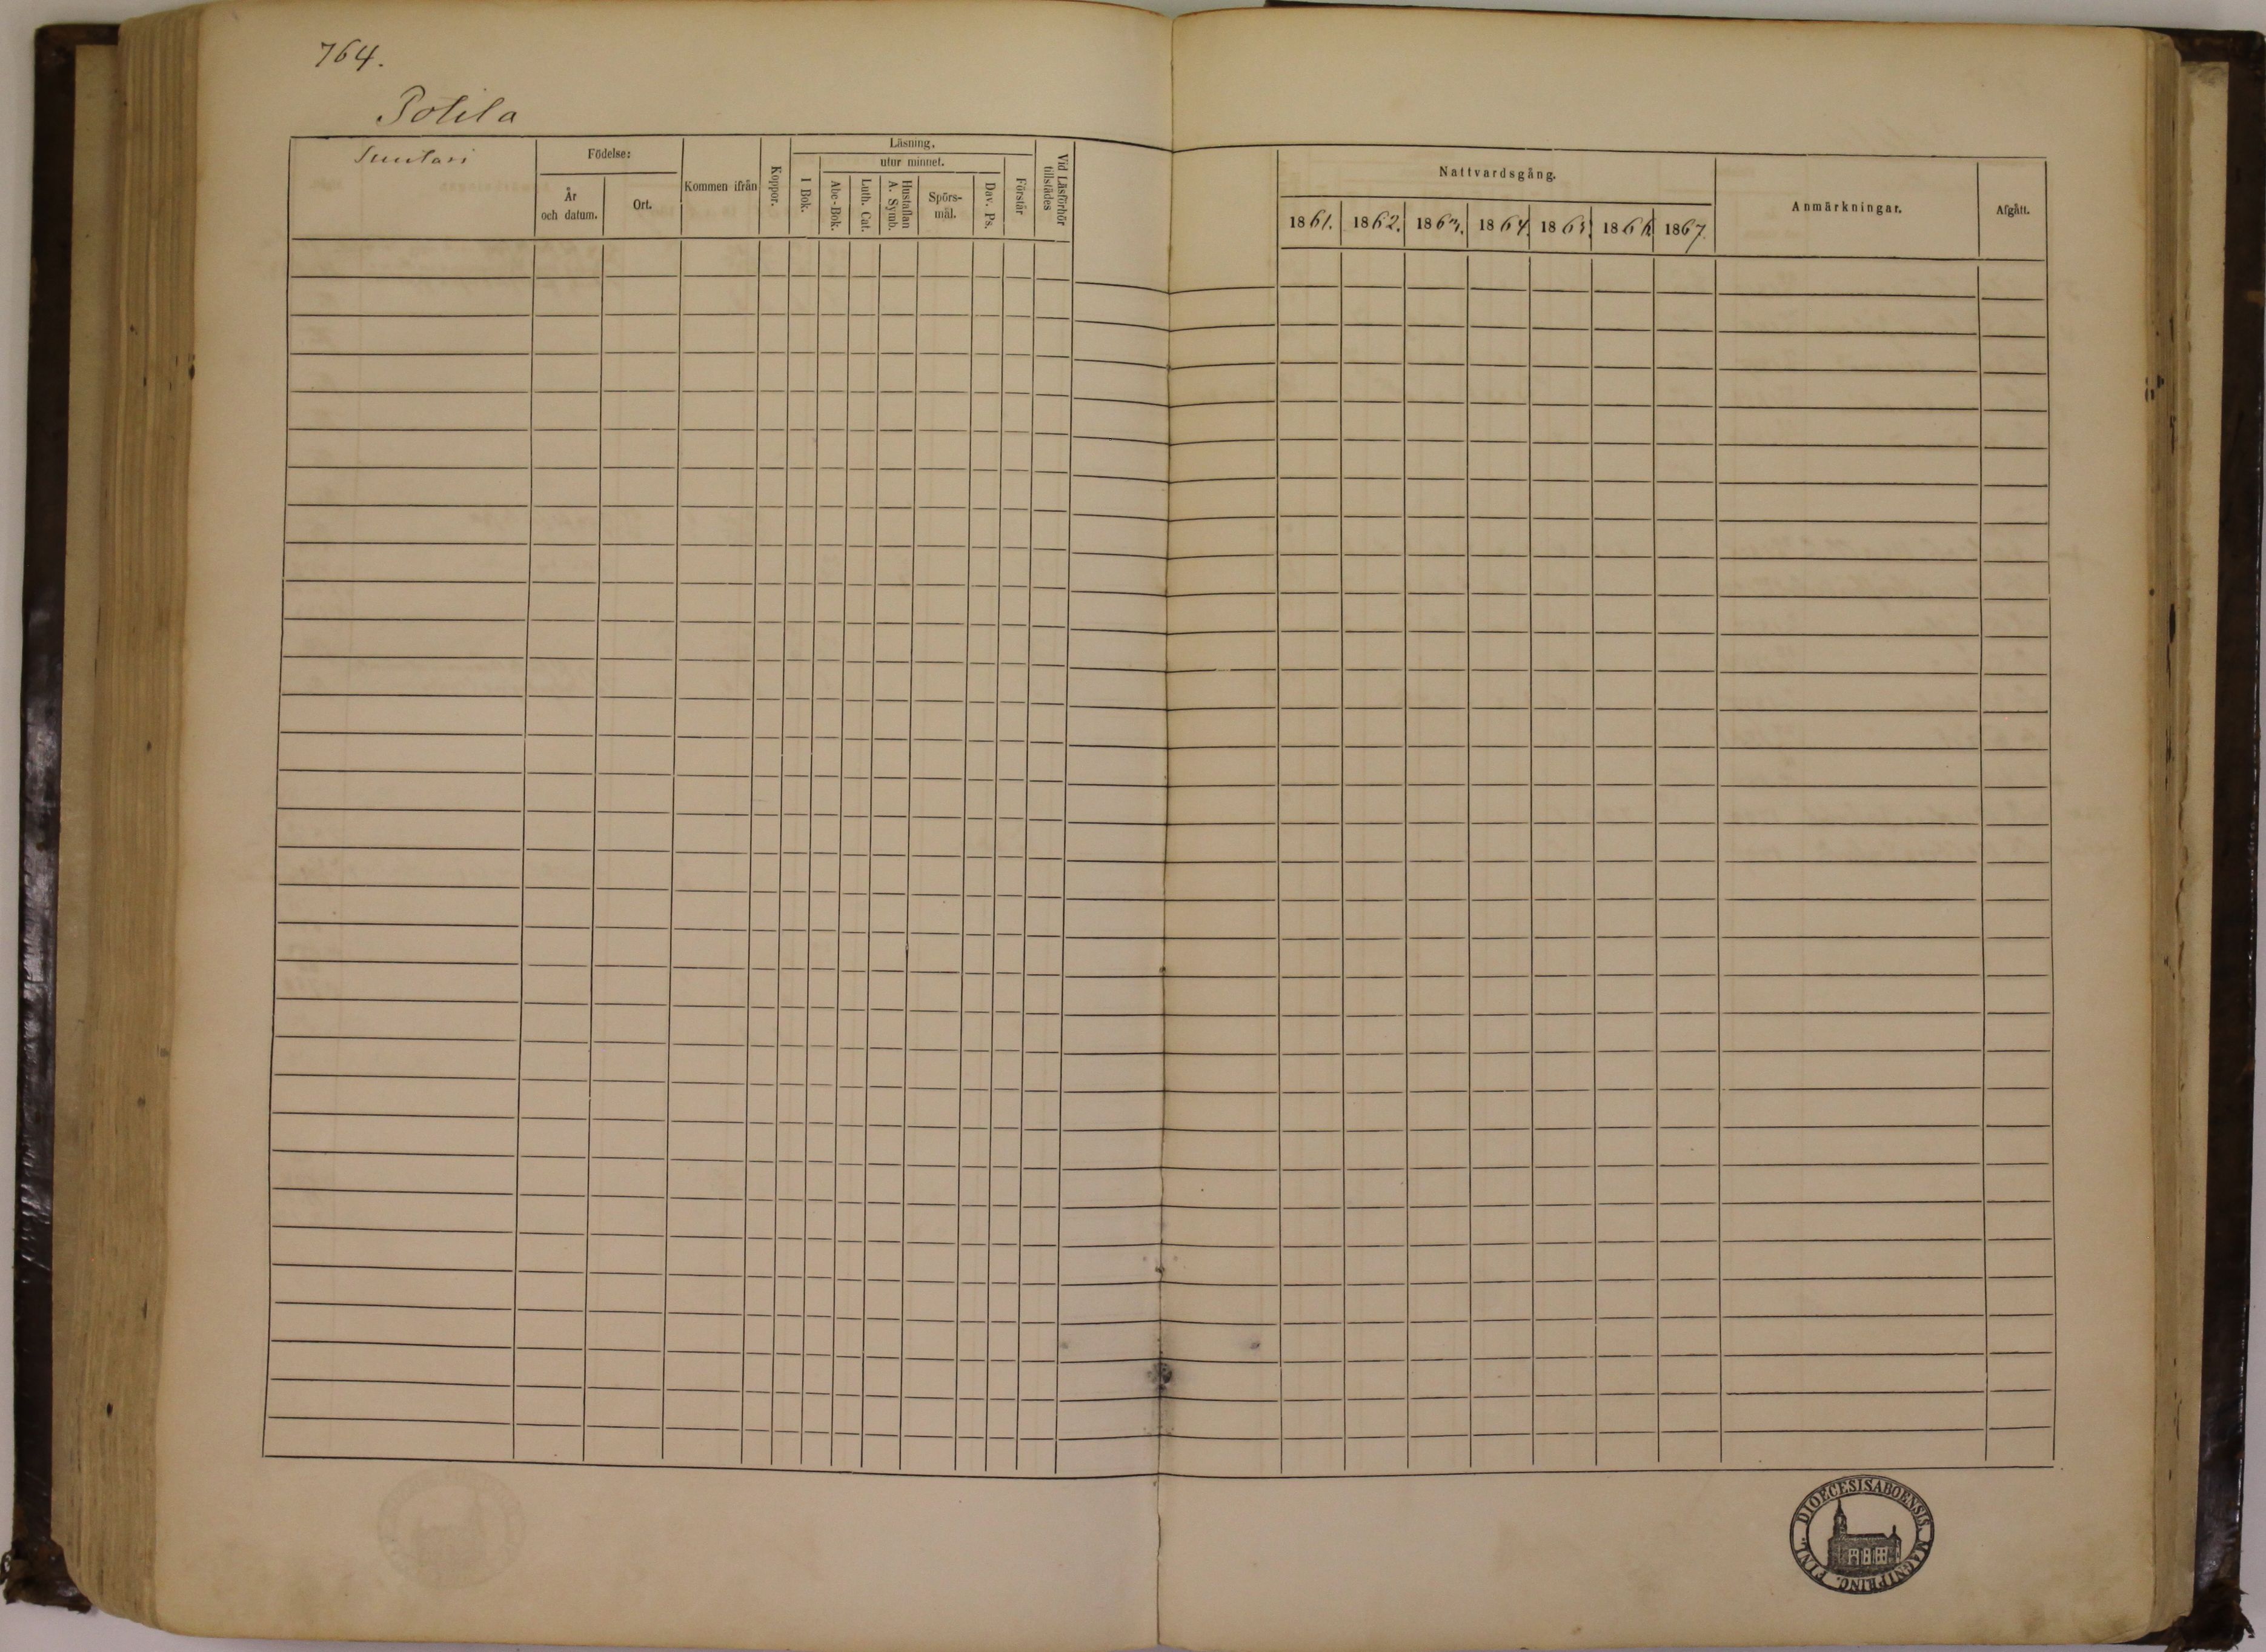 764.
Potila
Suutari
Födelse:
År
och datum.
Ort.
Kommen ifrån
Koppor.
Läsning.
I Bok.
utur minnet.
Abc-Bok.
Luth. Cat.
Hustaflan
A. Symb.
Spörs-
mål.
Dav. Ps.
Förstår
Vid Läsförhör
tillstädes
Nattvardsgång.
1861. 1862. 1863. 1864. 1865. 1866. 1867.
Anmärkningar.
Afgått.
DIOECESIS ABOENSIS. MAGNI PRINC. FINL.